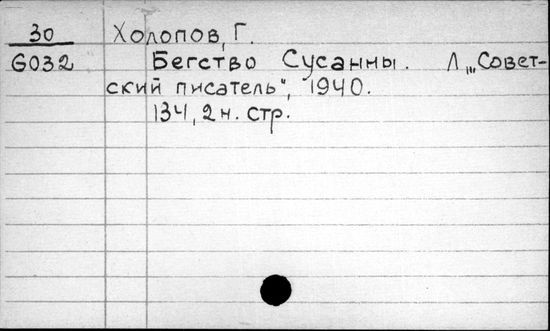 30 Холопов, Г.
6032 Бегство Сусанны. Л „Совет-
ский писатель", 1940.
134, 2 н. стр.